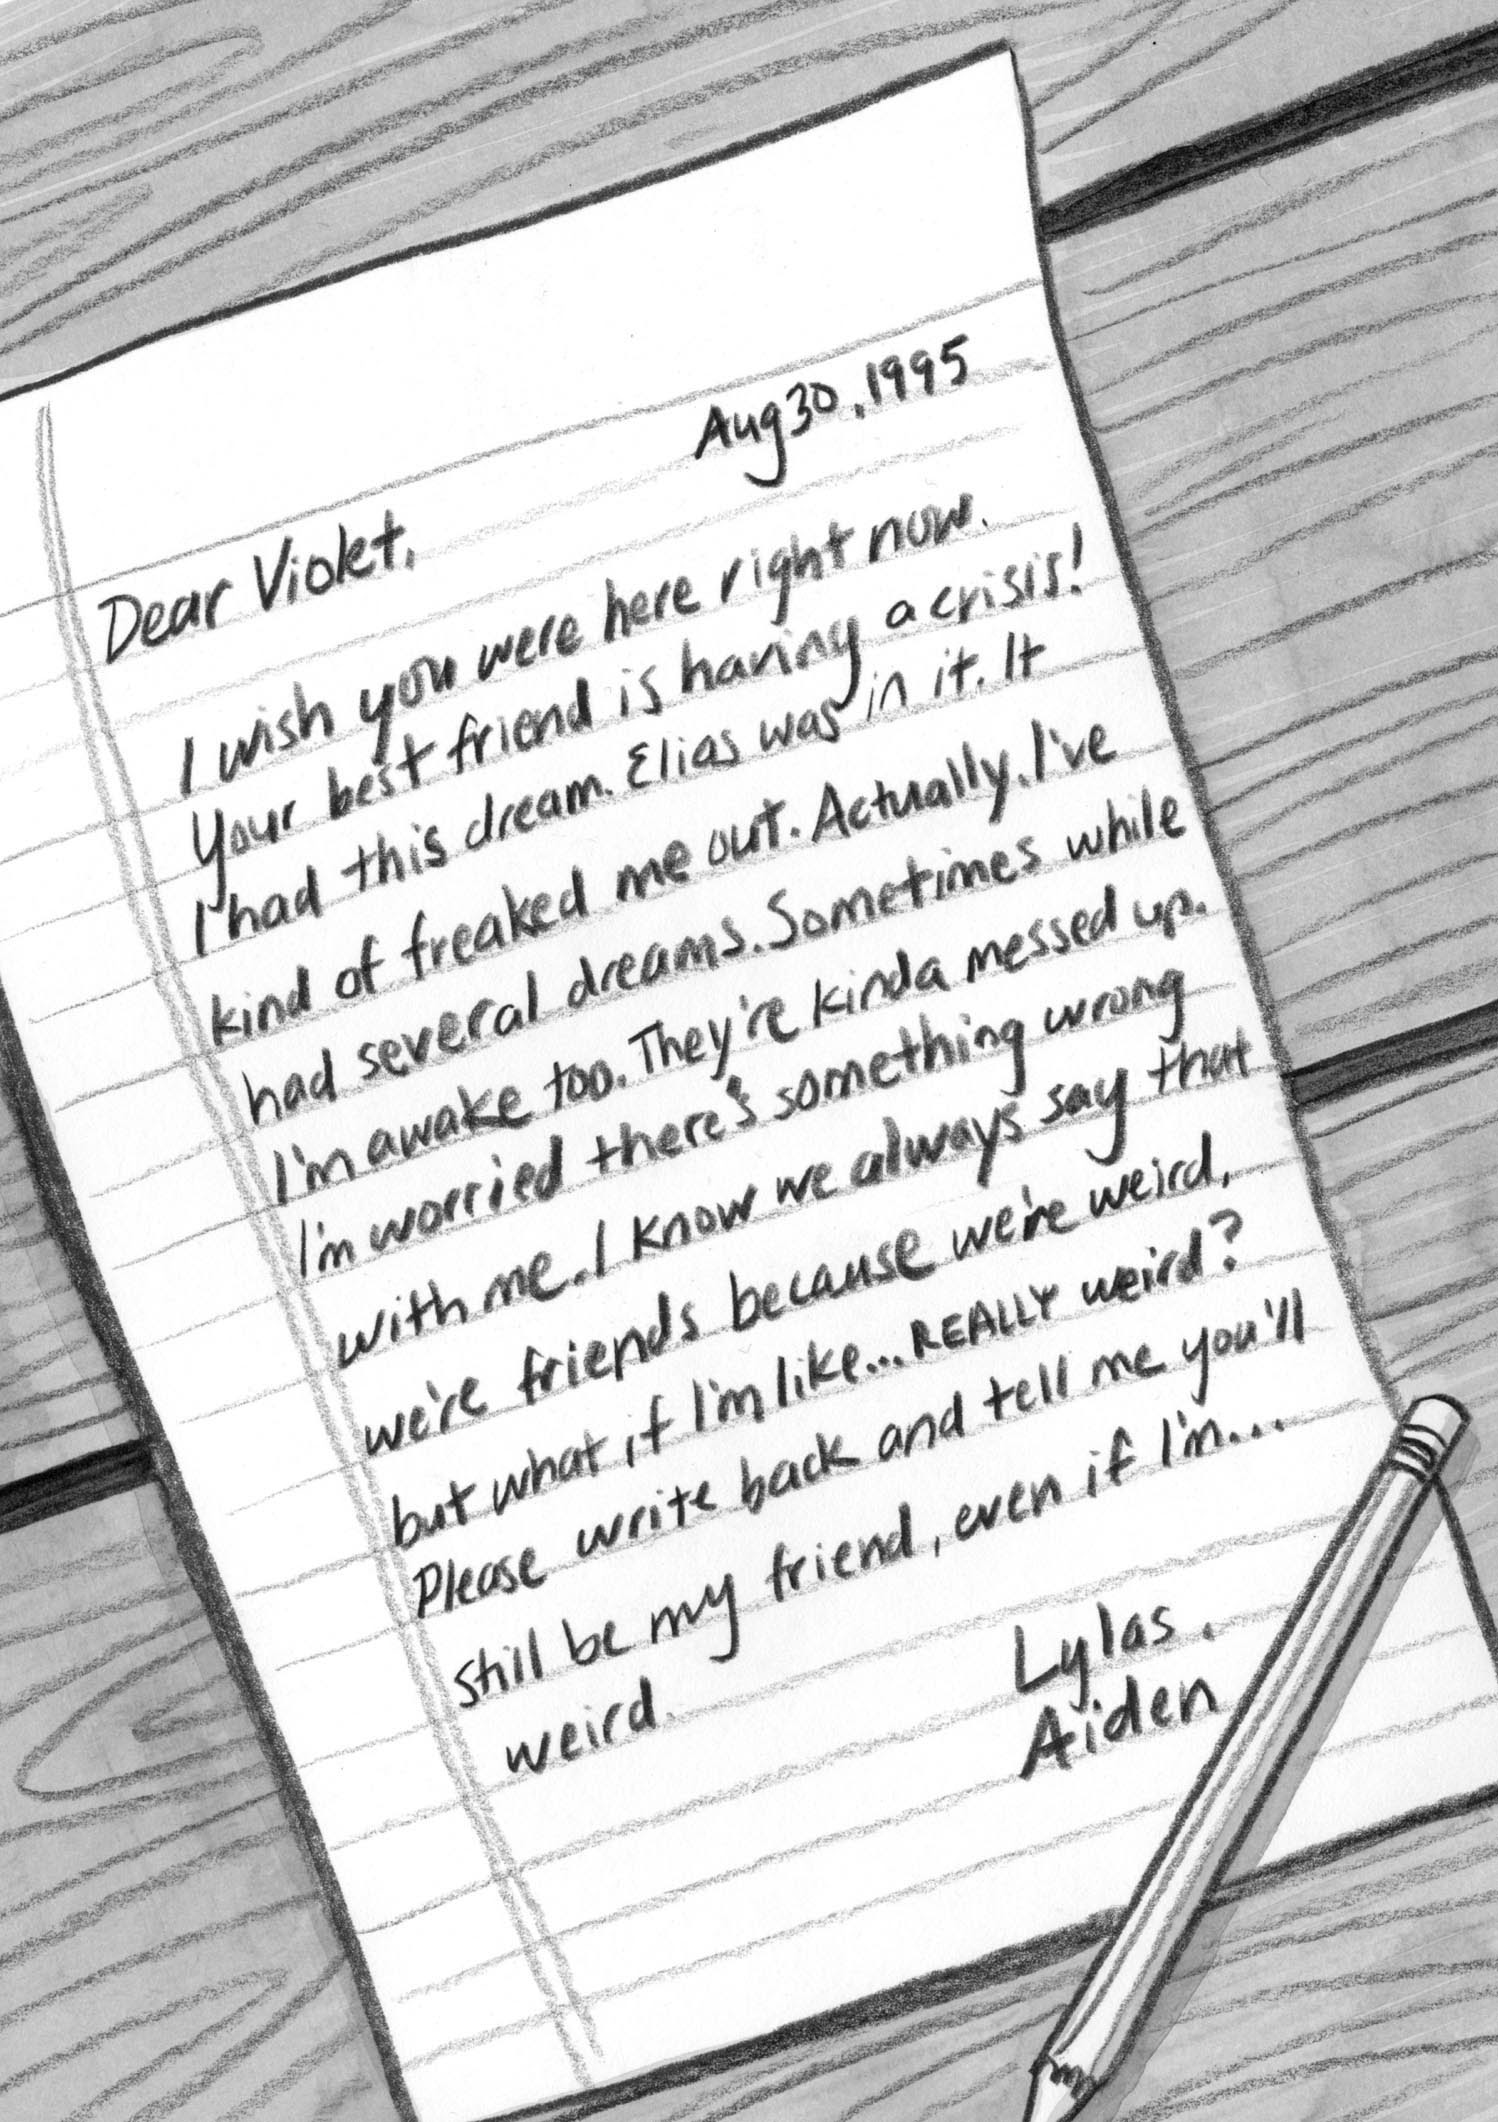 Aug 30, 1995
Dear Violet,
I wish you were here right now.
Your best friend is having a crisis!
I had this dream. Elias was in it. It
kind of freaked me out. Actually, I've
had several dreams. Sometimes while
I'm awake too. They're kinda messed up.
I'm worried there's something wrong
with me. I know we always say that
we're friends because we're weird,
but what if I'm like... REALLY weird?
Please write back and tell me you'll
still be my friend, even if I'm...
weird.
Lylas,
Aiden